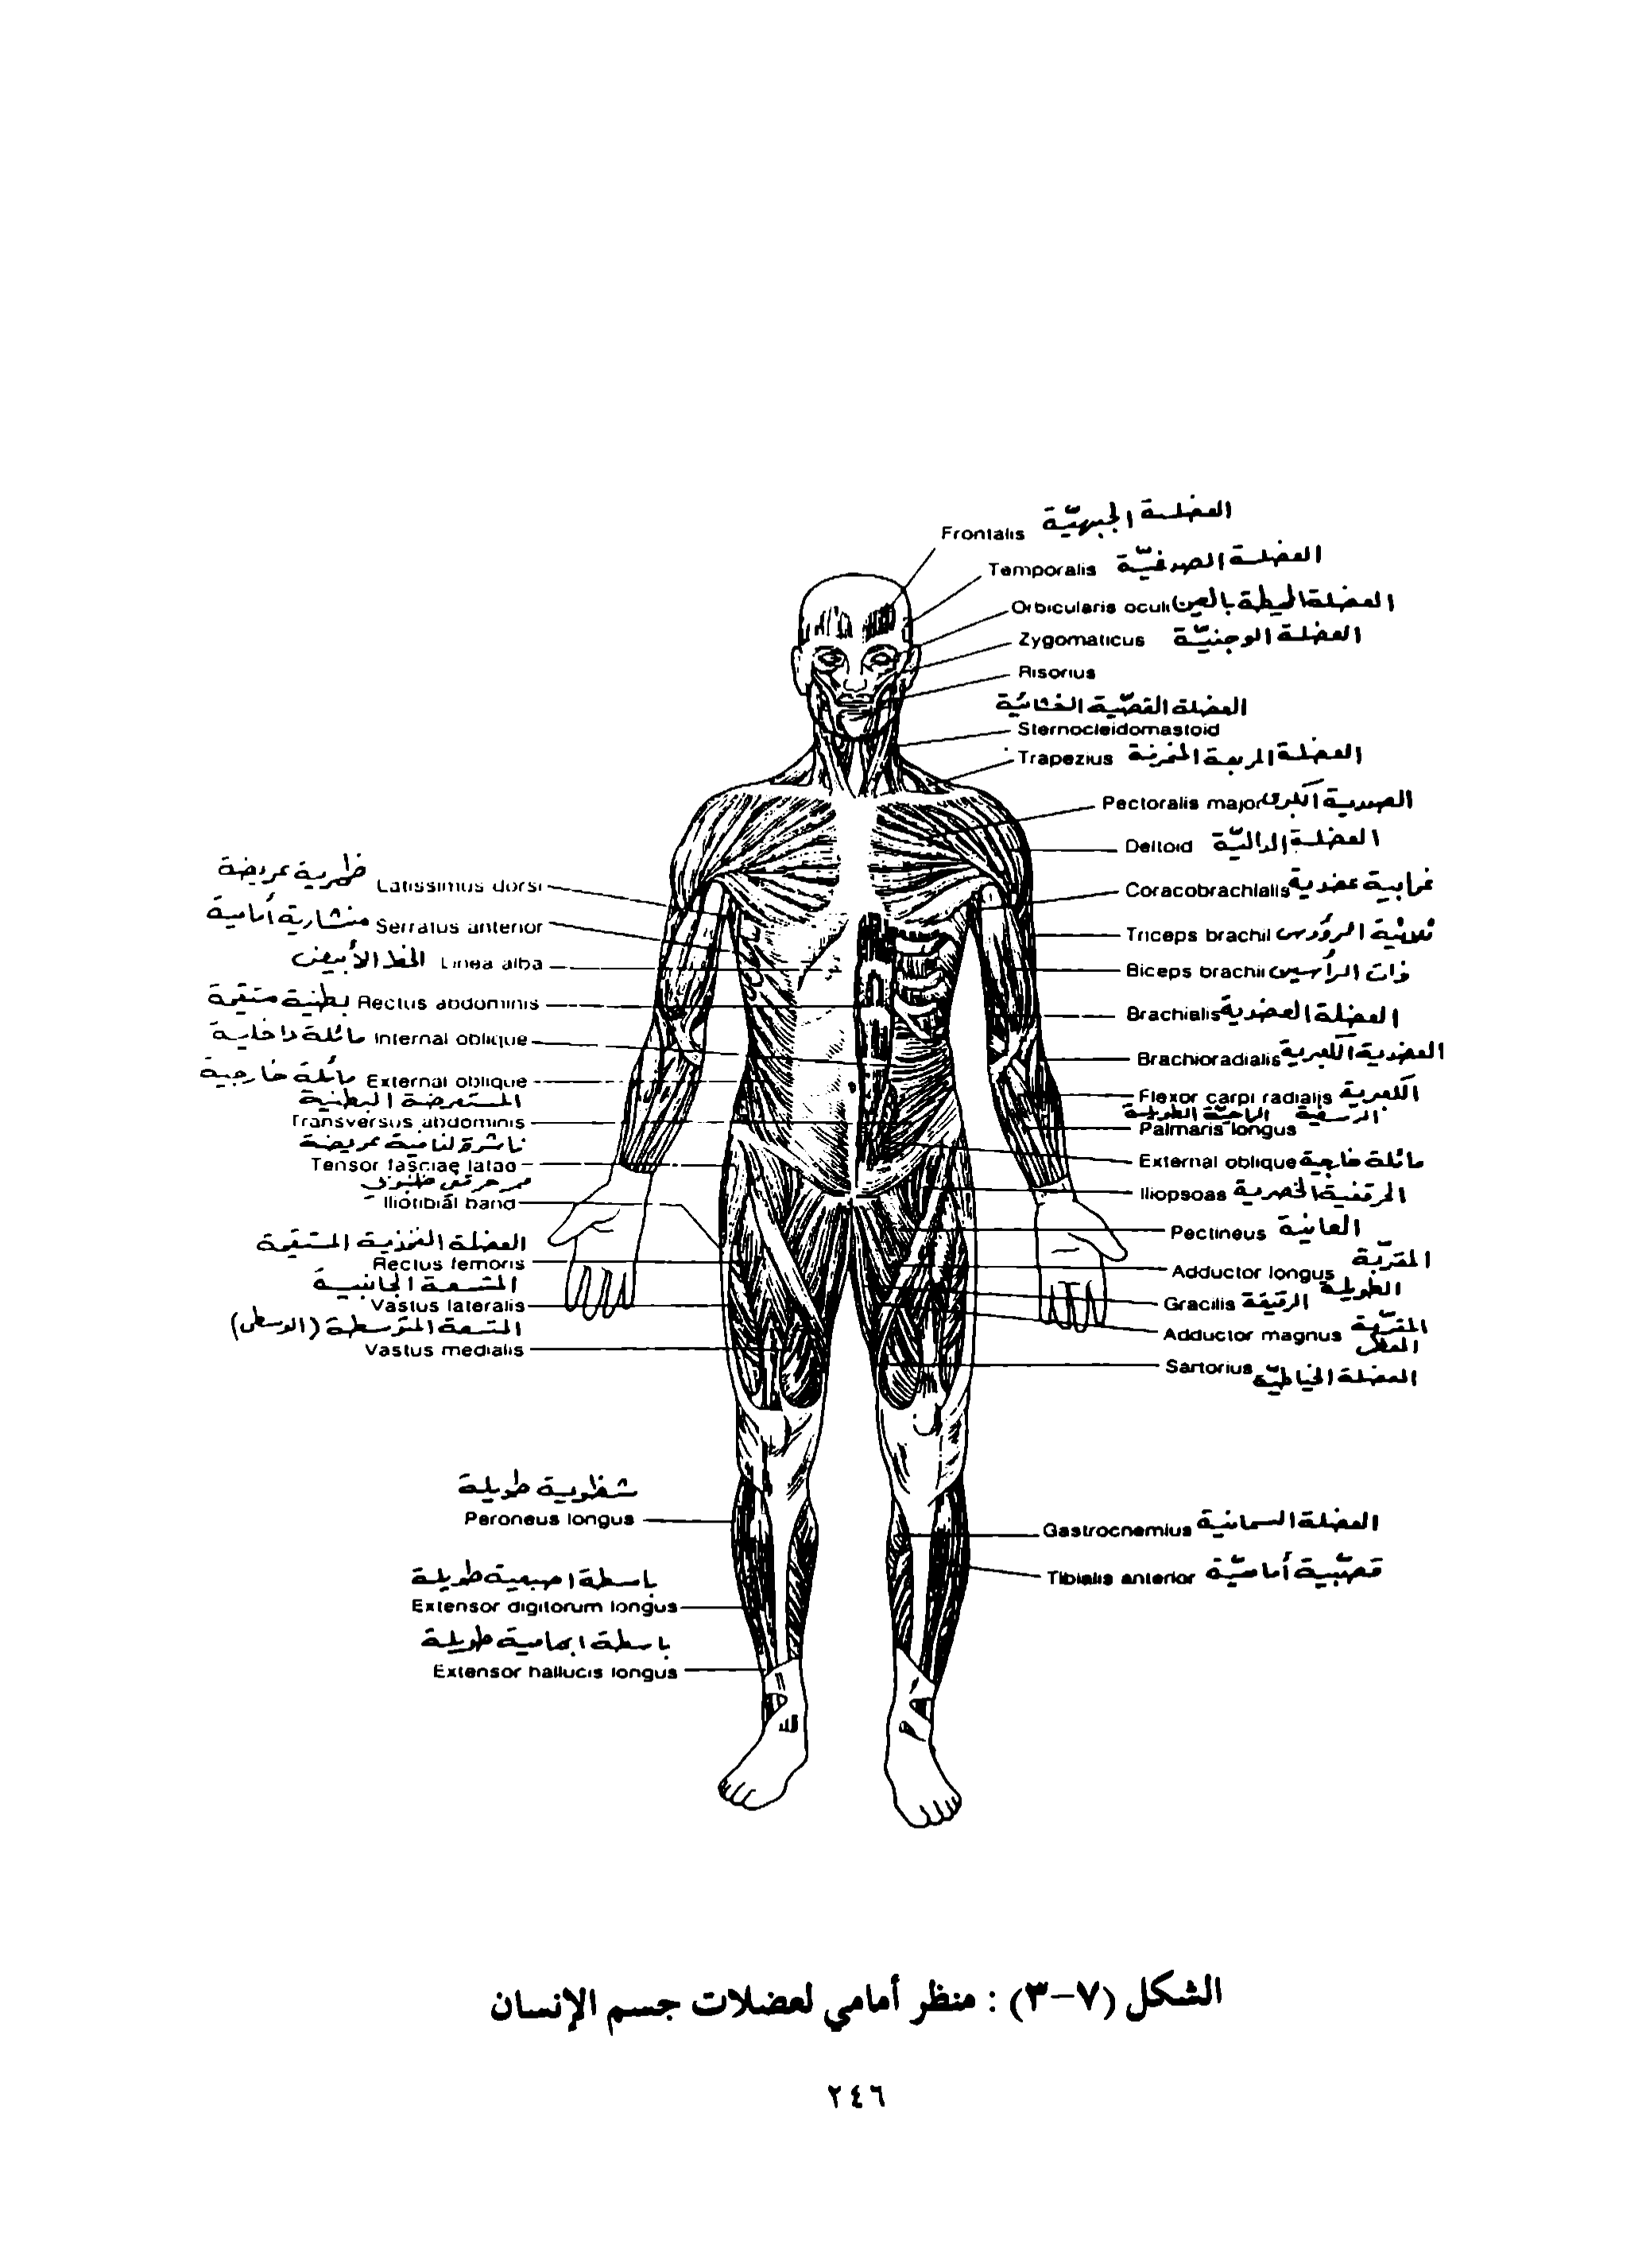 Frontalis العضلة الجبهيّة
Temporalis العضلة الصدغيّة
Orbicularis oculi العضلة المحيطة بالعين
Zygomaticus العضلة الوجنيّة
Risorius
العضلة القصّية الخشائية
Sternocleidomastoid
Trapezius العضلة المربعة المنحرفة
Pectoralis major الصدرية الكبرى
Deltoid العضلة الداليّة
Coracobrachialis غرابية عضدية
Triceps brachii ثلاثية الرؤوس
Biceps brachii ذات الرأسين
Brachialis العضلة العضدية
Brachioradialis العضدية الكعبرية
Flexor carpi radialis الكعبرية
الرسغية الراحيّة الطويلة
Palmaris longus
External oblique مائلة خارجية
Iliopsoas الحرقفية الخصرية
Pectineus العانية
Adductor longus المقرّبة
الطويلة
Gracilis الرقيقة
Adductor magnus المقرّبة
Sartorius العضلة الخياطيّة
Gastrocnemius العضلة السمانية
Tibialis anterior قصبّية أماميّة
Latissimus dorsi ظهرية عريضة
Serratus anterior منشارية أمامية
Linea alba الخط الأبيض
Rectus abdominis بطنية مستقيمة
Internal oblique مائلة داخلية
External oblique مائلة خارجية
المستعرضة البطنية
Transversus abdominis
عريضة
Tensor fasciae latae
Iliotibial band
العضلة الفخذية المستقيمة
Rectus femoris
المتسعة الجانبية
Vastus lateralis
المتسعة المتوسطة (الوسطى)
Vastus medialis
شظوية طويلة
Peroneus longus
باسطة اصبعية طويلة
Extensor digitorum longus
باسطة ابهامية طويلة
Extensor hallucis longus
الشكل (٧-٣) : منظر أمامي لعضلات جسم الإنسان
٢٤٦